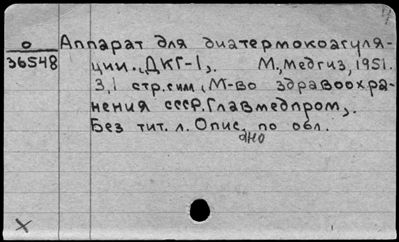 о
36548
Аппарат для диатермокоагуля-
ции „ДКГ-1„. М., Медгиз, 1951.
3,1 стр. с им (М-во здравоохра-
нения СССР. Главмедпром„.
Без тит. л. Опис. по обл.
ано
X